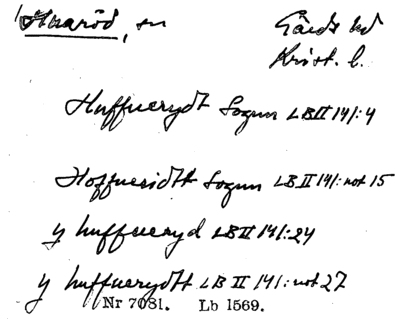 Huaröd, sn Gärds hd
Krist. l.
Huffuerydt Sogun LB II 141:4
Hoffueridtt Sogun LB II 141: not 15
y huffueryd LB II 141:24
y huffuerydtt LB II 141: not 27
Nr 7081. Lb 1569.